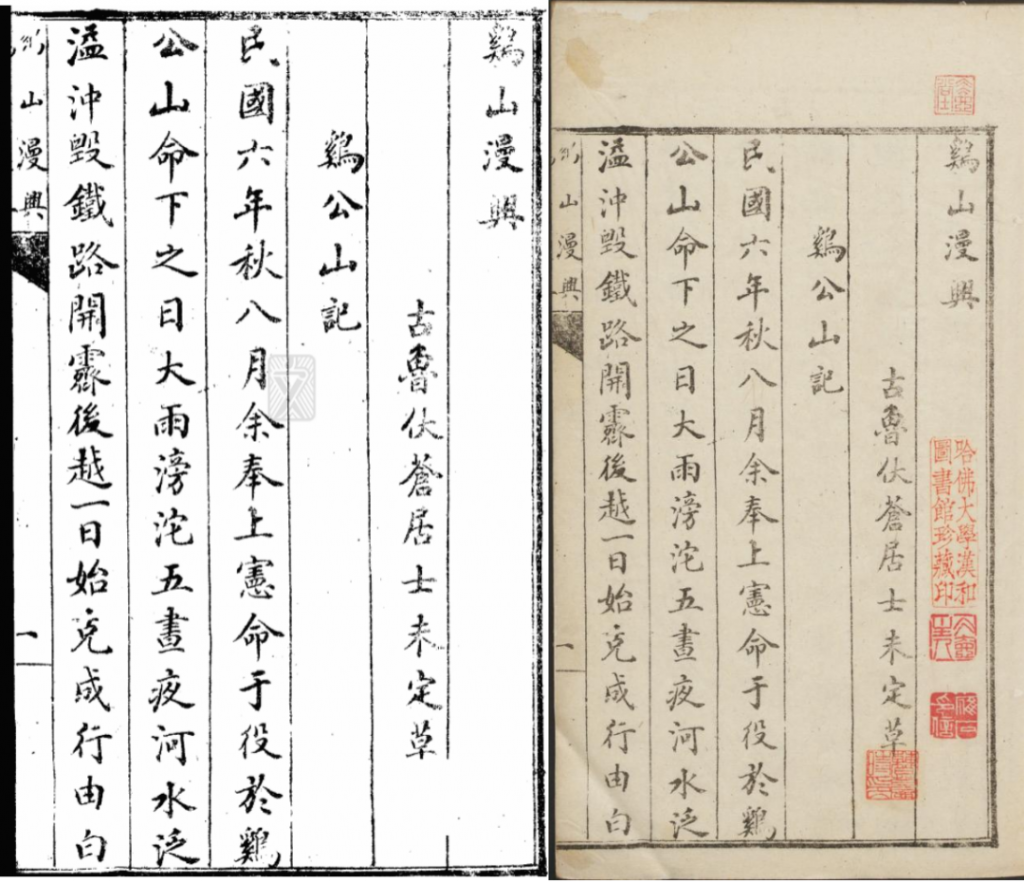 鷄山漫興
古魯伏蒼居士未定草
鷄公山記
民國六年秋八月余奉上憲命于役於鷄
公山命下之日大雨滂沱五晝夜河水泛
溢沖毀鐵路開霽後越一日始克成行由白
山漫興
一
鷄山漫興
哈佛大學漢和
圖書館珍藏印
古魯伏蒼居士未定草
鷄公山記
民國六年秋八月余奉上憲命于役於鷄
公山命下之日大雨滂沱五晝夜河水泛
溢沖毀鐵路開霽後越一日始克成行由白
山漫興
一